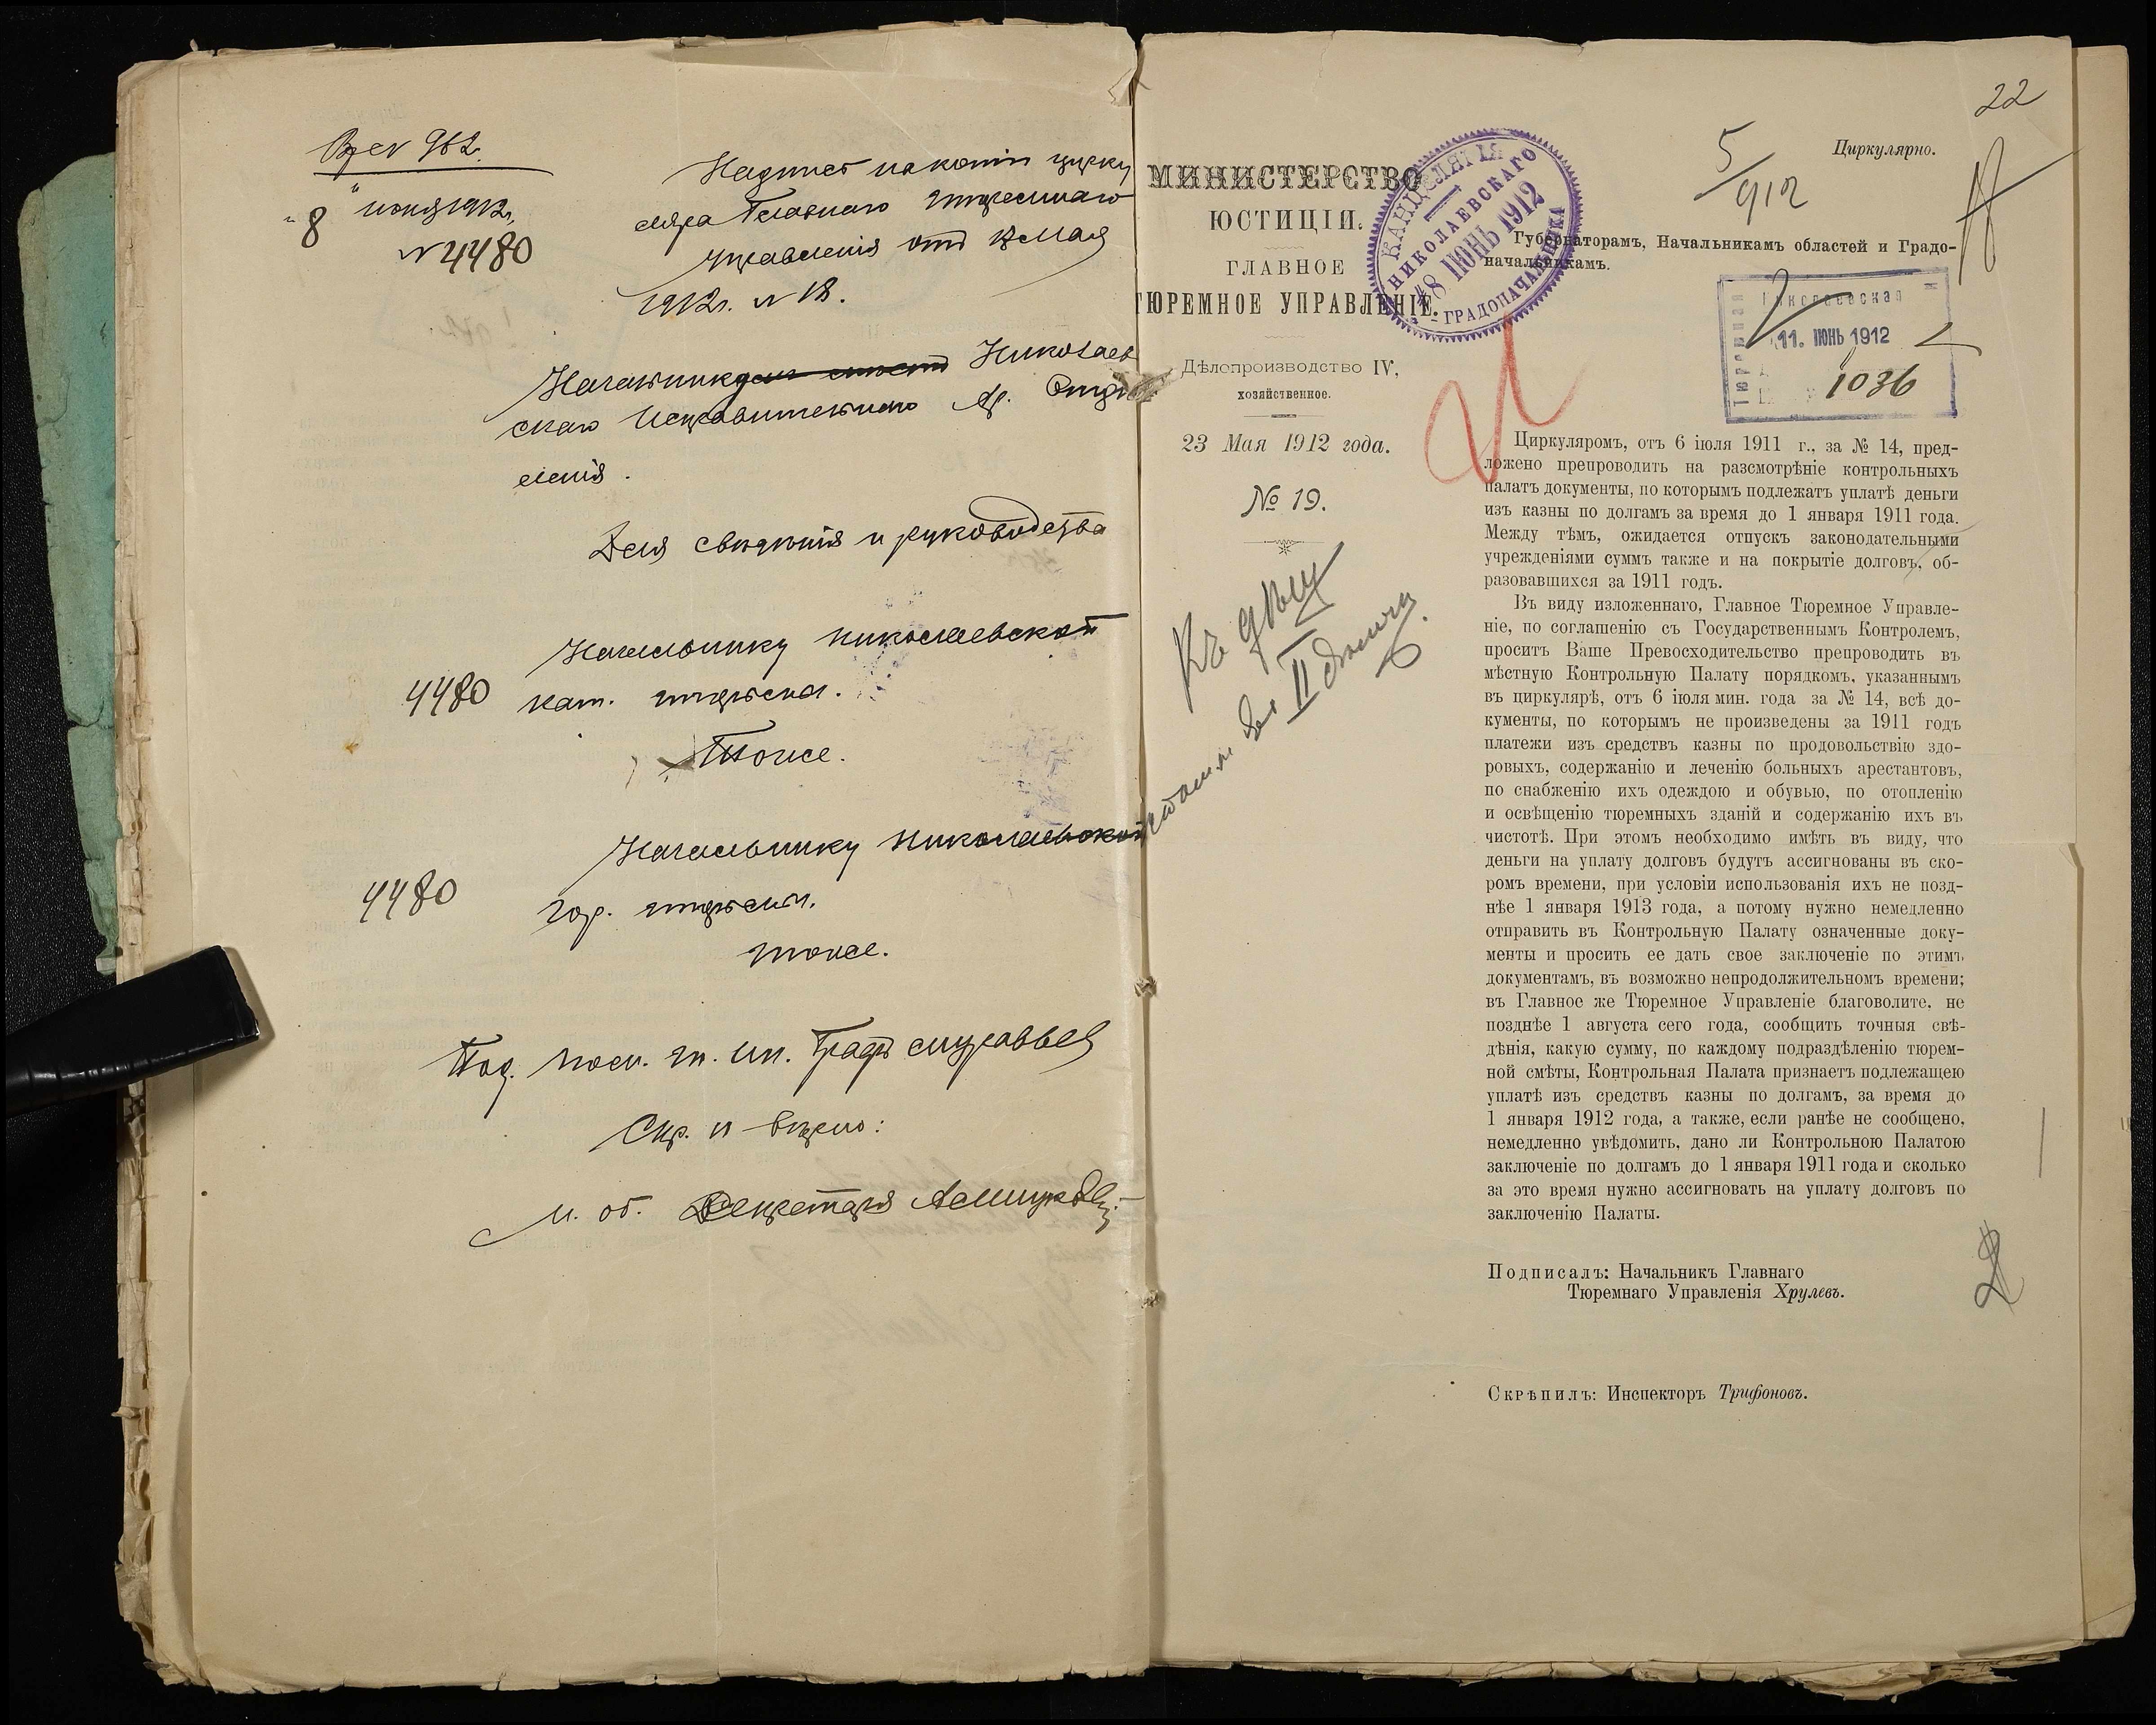 8 июня 1912 г.
№ 4480
Надпись на копіи цирку
ляра Главнаго тюремнаго
управленія отъ 18 Мая
1912 г. № 18.
Начальнику Николаев
скаго Исправительнаго Ар. Отдѣ
ленія.
Для свѣдѣнія и руководства
Начальнику николаевской
4480 кат. тюрьмы.
Тоже.
Начальнику николаевской
4480 гор. тюрьмы.
тоже.
Под.
Скр. и вѣрно:
и. об. Секретаря
22
Циркулярно.
5/912
МИНИСТЕРСТВО
ЮСТИЦІИ.
ГЛАВНОЕ
ТЮРЕМНОЕ УПРАВЛЕНІЕ.
Дѣлопроизводство IV,
хозяйственное.
23 Мая 1912 года.
№ 19.
Къ дѣлу
КАНЦЕЛЯРІЯ
НИКОЛАЕВСКАГО
8 ІЮНЬ 1912
ГРАДОНАЧАЛЬНИКА
Губернаторамъ, Начальникамъ областей и Градо-
начальникамъ.
Николаевская
11. ІЮНЬ 1912
1036
Циркуляромъ, отъ 6 іюля 1911 г., за № 14, пред-
ложено препроводить на разсмотрѣніе контрольныхъ
палатъ документы, по которымъ подлежатъ уплатѣ деньги
изъ казны по долгамъ за время до 1 января 1911 года.
Между тѣмъ, ожидается отпускъ законодательными
учрежденіями суммъ также и на покрытіе долговъ, об-
разовавшихся за 1911 годъ.
Въ виду изложеннаго, Главное Тюремное Управле-
ніе, по соглашенію съ Государственнымъ Контролемъ,
проситъ Ваше Превосходительство препроводить въ
мѣстную Контрольную Палату порядкомъ, указаннымъ
въ циркулярѣ, отъ 6 іюля мин. года за № 14, всѣ до-
кументы, по которымъ не произведены за 1911 годъ
платежи изъ средствъ казны по продовольствію здо-
ровыхъ, содержанію и леченію больныхъ арестантовъ,
по снабженію ихъ одеждою и обувью, по отопленію
и освѣщенію тюремныхъ зданій и содержанію ихъ въ
чистотѣ. При этомъ необходимо имѣть въ виду, что
деньги на уплату долговъ будутъ ассигнованы въ ско-
ромъ времени, при условіи использованія ихъ не позд-
нѣе 1 января 1913 года, а потому нужно немедленно
отправить въ Контрольную Палату означенные доку-
менты и просить ее дать свое заключеніе по этимъ
документамъ, въ возможно непродолжительномъ времени;
въ Главное же Тюремное Управленіе благоволите, не
позднѣе 1 августа сего года, сообщить точныя свѣ-
дѣнія, какую сумму, по каждому подраздѣленію тюрем-
ной смѣты, Контрольная Палата признаетъ подлежащею
уплатѣ изъ средствъ казны по долгамъ, за время до
1 января 1912 года, а также, если ранѣе не сообщено,
немедленно увѣдомить, дано ли Контрольною Палатою
заключеніе по долгамъ до 1 января 1911 года и сколько
за это время нужно ассигновать на уплату долговъ по
заключенію Палаты.
Подписалъ: Начальникъ Главнаго
Тюремнаго Управленія Хрулевъ.
Скрѣпилъ: Инспекторъ Трифоновъ.